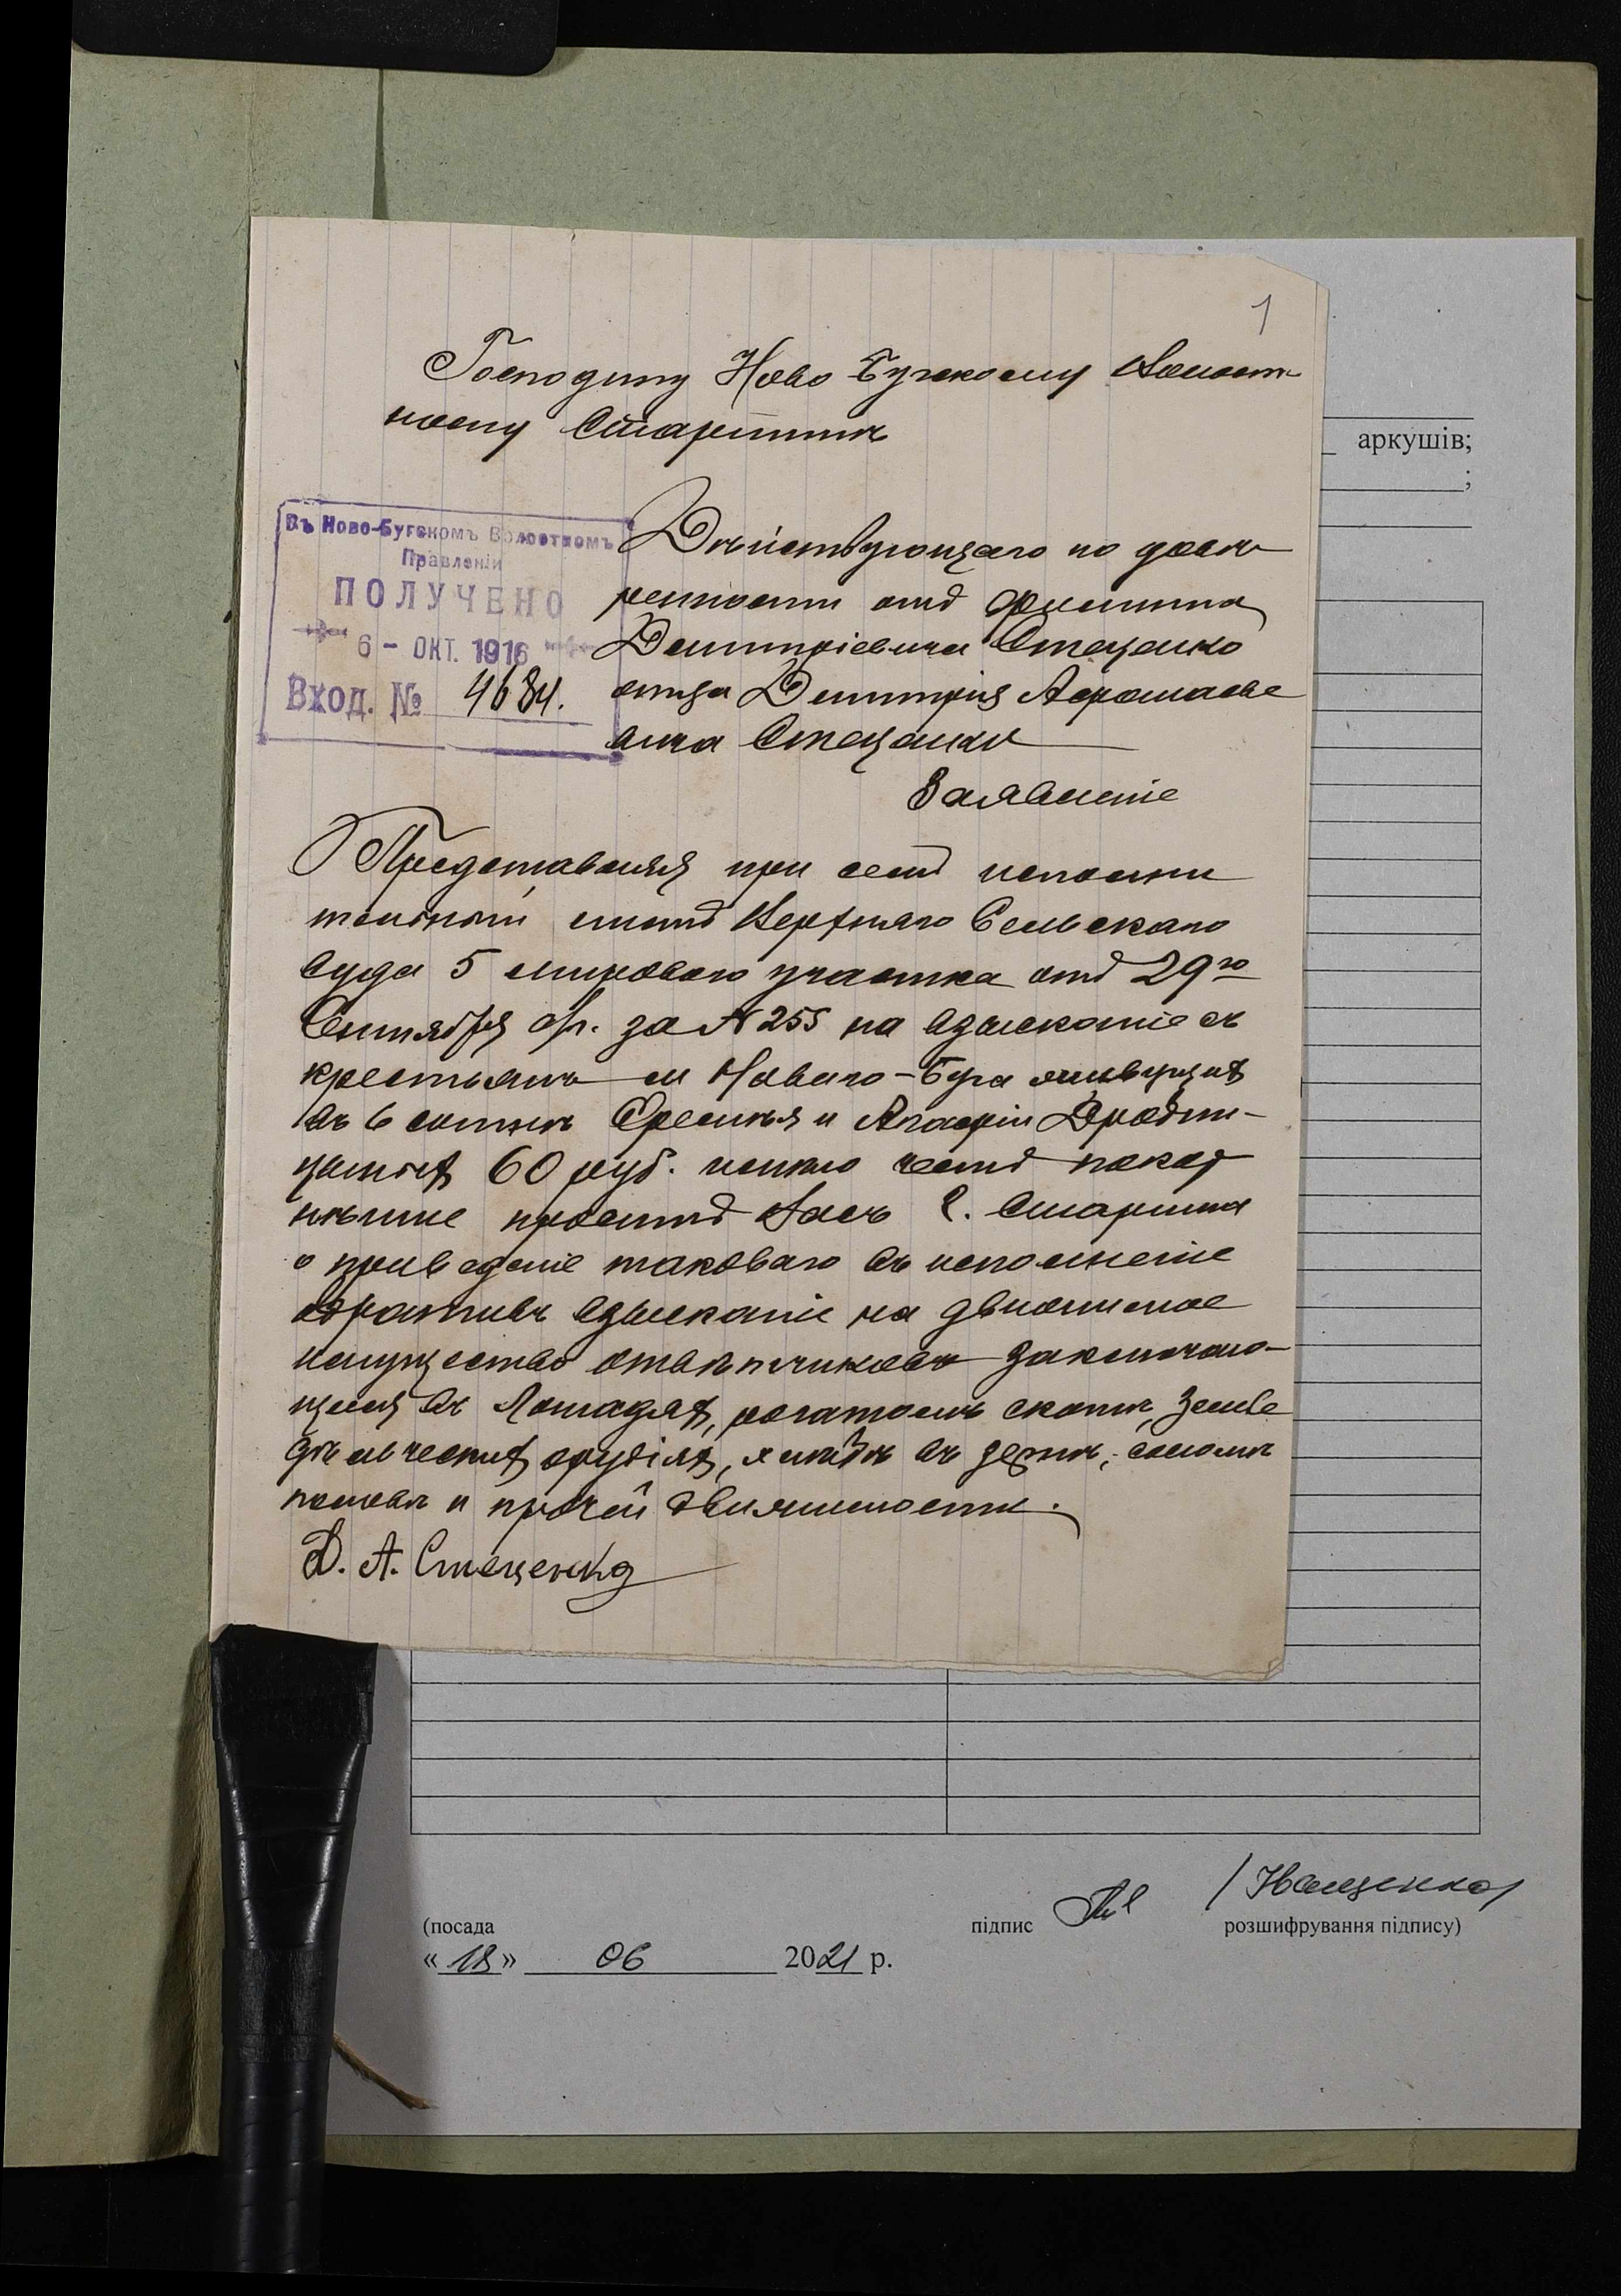 1
Господину Ново-Бугскому Волост-
ному Старшинѣ
Въ Ново-Бугскомъ Волостномъ
Правленіи
ПОЛУЧЕНО
6 - ОКТ. 1916
Вход. № 4684.
Дѣйствующаго по довѣ
ренности отъ
Дмитріевича Стеценко
отца Дмитрія
вича Стеценко
Заявленіе
Представляя при семъ исполни
тельный листъ Верхняго Сельскаго
Суда 5 мирового участка отъ 29го
Сентября с/г. за № 255 на взысканіе съ
крестьянъ м Новаго-Буга живущихъ
въ 6 сотнѣ и
60 руб. имѣю честь покор
нѣйше просить Васъ Г. Старшина
о приведеніе таковаго въ исполненіе
обративъ взысканіе на движимое
имущество отвѣтчиковъ заключаю-
щееся въ Лошадяхъ, рогатомъ скотѣ, Земле
дѣльческихъ орудіяхъ, хлѣбѣ въ зернѣ, соломѣ
половѣ и прочей движимости.
Д. А. Стеценко
аркушів;
;
(посада
підпис
/Іващенко/
розшифрування підпису)
«18» 06 2021 р.